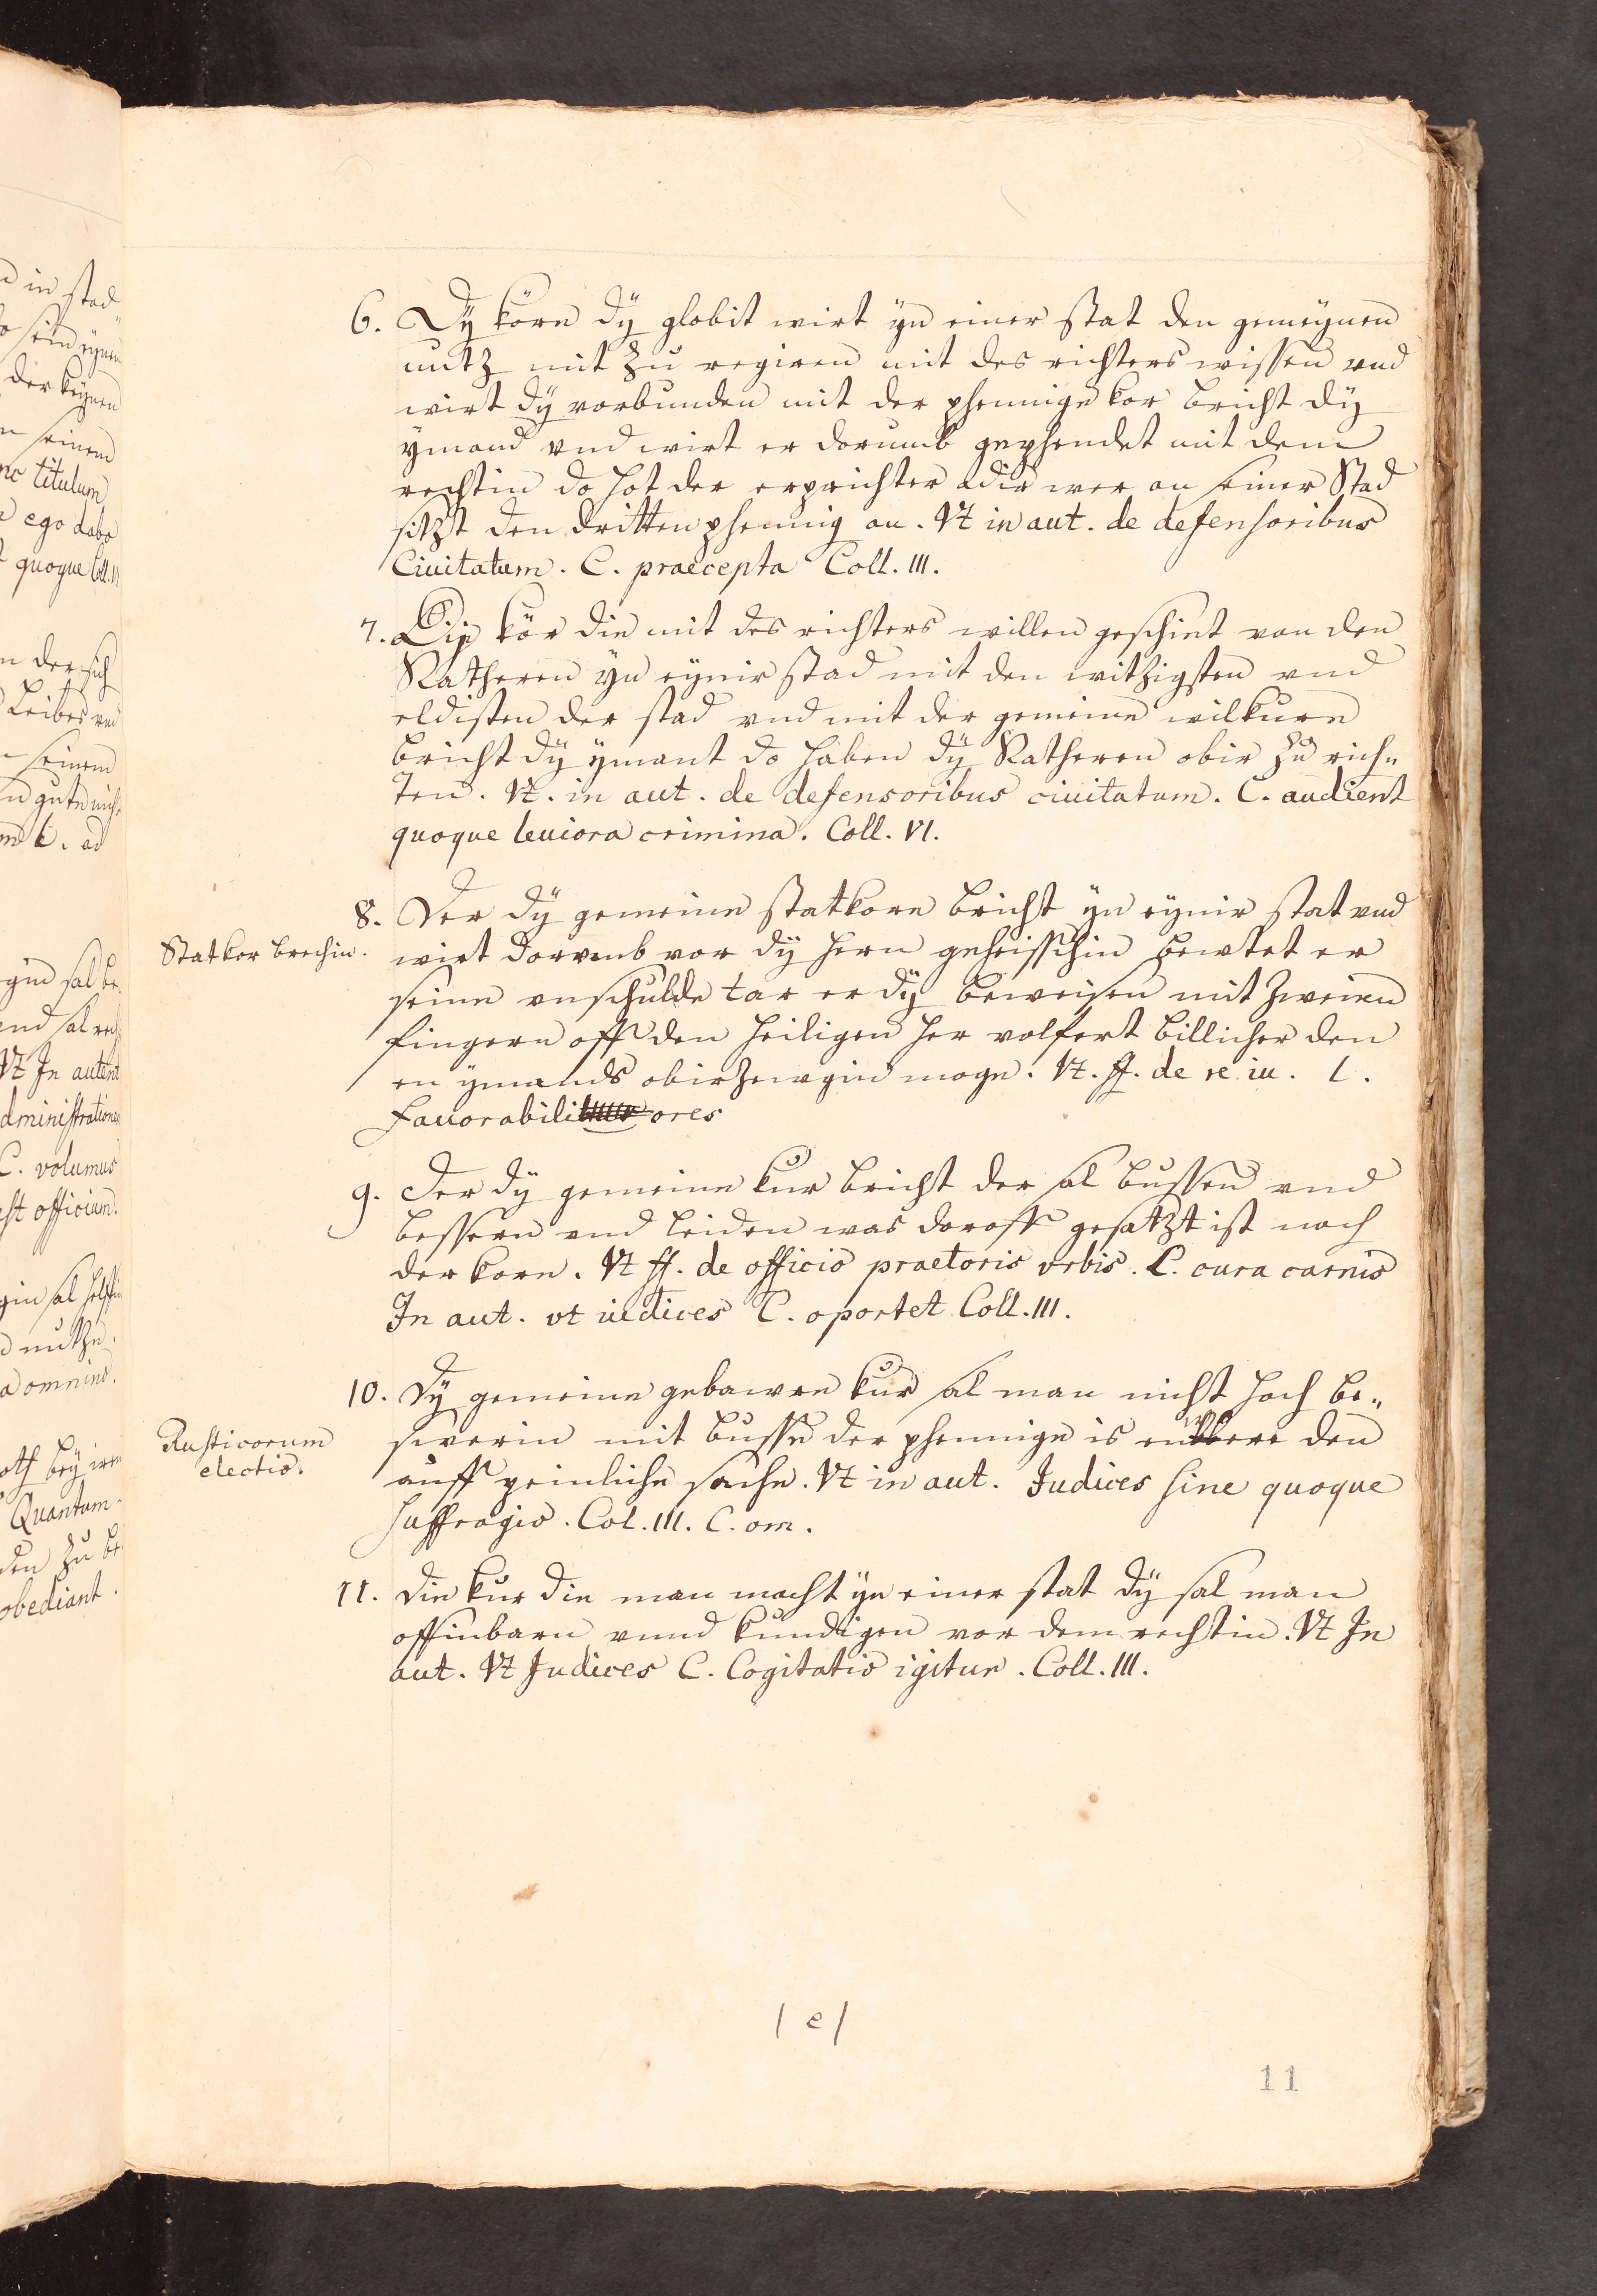 6. Dÿ körn dÿ globit wirt ÿn einer stat den gemeynen
nutz mit zu regiren mit des richters wissen vnd
wirt dÿ vorbunden mit der phennige kor bricht dÿ
ÿmand vnd wirt er dorumb gephendet mit dem
rechtin do hot der erprichter adir wer an seiner Stad
sitzt den dritten phennig an. Vt in aut. de defensoribus
Ciuitatum. C. praecepta Coll. III.
7. Die kör die mit des richters willen geschiet von den
Ratheren ÿn eÿnir stad mit den witzigsten vnd
eldisten der stad vnd mit der gemeine wilkure
bricht dÿ ÿmant do haben dÿ Ratheren obir zu rich„
ten. Vt. in aut. de defensoribus ciuitatum. C. audient
quoque leuiora crimina. Coll. VI.
8. Der dÿ gemeine statkore bricht ÿn eÿnir stat vnd
Statkor brechin.
wirt dorvmb vor dÿ hern geheisschin bewtet er
seine vnschulde tar er dÿ beweisen mit zweien
fingern off den heiligen her volfert billicher den
en ÿmands obirzewgin moge. Vt. ff. de re iu. l.
Fauorabiliores
9. Der dÿ gemeine kur bricht der sal bussen vnd
bessern vnd leiden was doroff gesatzt ist noch
der kore. Vt ff. de officio praetoris vrbis. L. cura carnis
In aut. vt iudices C. oportet Coll. III.
10. Dÿ gemeine gebawre kur sal man nicht hoch be„
Rusticorum
electio.
swerin mit busse der phennige is den
auff peinliche sache. Vt in aut. Judices sine quoque
suffragio. Col. III. C. om.
11. Die kur die man macht ÿn einer stat dÿ sal man
offinbarn vnnd kundigen vor dem rechtin. Vt In
aut. Vt Judices C. Cogitatio igitur. Coll. III.
| e |
11